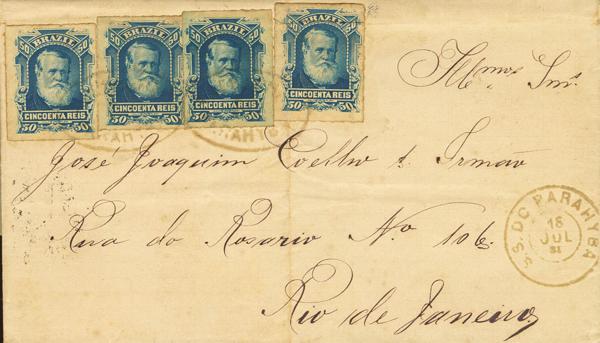 50 BRAZIL 50
CINCOENTA REIS
50 50
50 BRAZIL 50
CINCOENTA REIS
50 50
50 BRAZIL 50
CINCOENTA REIS
50 50
50 BRAZIL 50
CINCOENTA REIS
50 50
Illmos. Snrs.
José Joaquim Coelho & Irmão
Rua do Rosario No 106
Rio de Janeiro
S.S. DO PARAHYBA
18
JUL
81